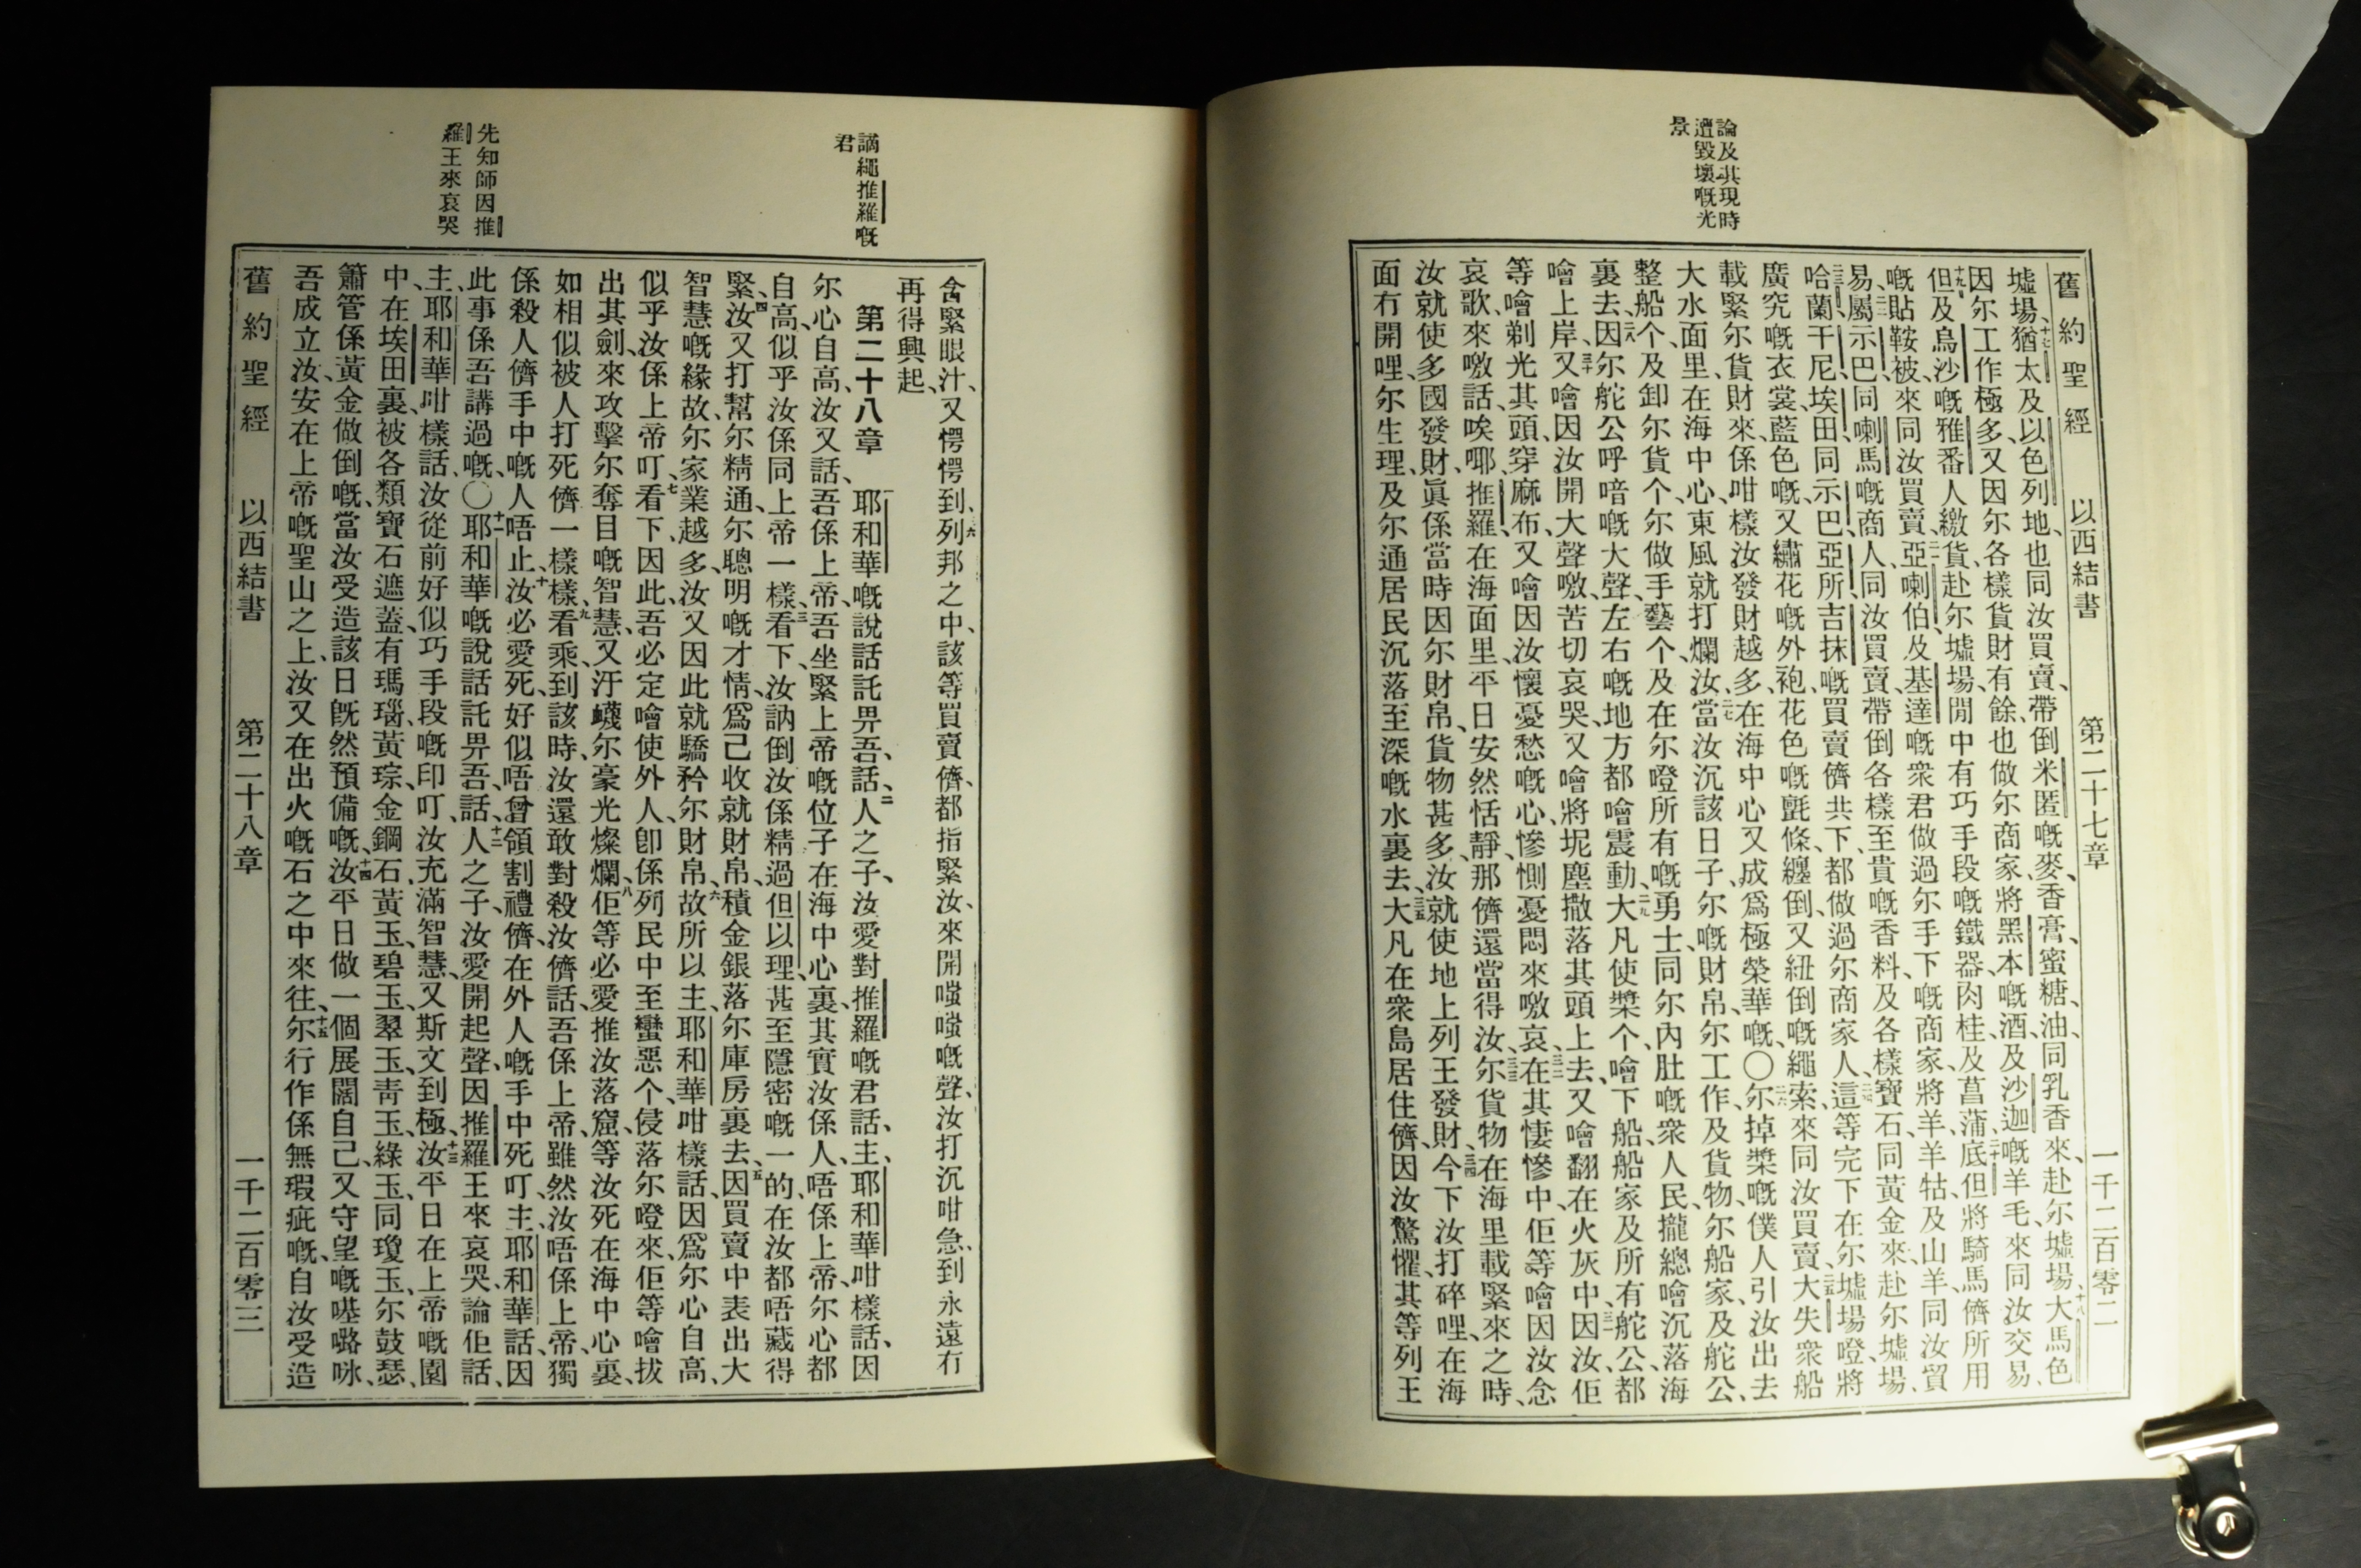 論及其現時
遭毀壞嘅光
景
舊約聖經 以西結書 第二十七章 一千二百零二
墟場、十七猶太及以色列地、也同汝買賣、帶倒米匿嘅麥、香膏、蜜糖、油、同乳香來、赴尔墟場、十八大馬色
因尔工作極多、又因尔各樣貨財有餘、也做尔商家、將黑本嘅酒、及沙迦嘅羊毛、來同汝交易、
十九但及烏沙嘅雅番人、繳貨赴尔墟場、閒中有巧手段嘅鐵器、肉桂、及菖蒲、二十底但將騎馬儕所用
嘅貼鞍被、來同汝買賣、二一亞喇伯、及基達嘅衆君、做過尔手下嘅商家、將羊羊牯、及山羊、同汝貿
易、二二屬示巴、同喇馬嘅商人、同汝買賣、帶倒各樣至貴嘅香料、及各樣寶石、同黃金來、赴尔墟場、
二三哈蘭、干尼、埃田、同示巴、亞所、吉抹、嘅買賣儕、共下都做過尔商家人、二四這等完下在尔墟場嶝、將
廣究嘅衣裳、藍色嘅、又繡花嘅外袍、花色嘅氈、條纏倒、又紐倒嘅繩索、來同汝買賣、二五大失衆船
載緊尔貨財來、係咁樣汝發財越多、在海中心又成爲極榮華嘅〇二六尔掉槳嘅僕人、引汝出去
大水面里、在海中心、東風就打爛汝、二七當汝沉該日子、尔嘅財帛、尔工作、及貨物、尔船家、及舵公、
整船个、及卸尔貨个、尔做手藝个、及在尔嶝所有嘅勇士、同尔內肚嘅衆人民、攏總噲沉落海
裏去、二八因尔舵公呼喑嘅大聲、左右嘅地方都噲震動、二九大凡使槳个、噲下船、船家及所有舵公、都
噲上岸、三十又噲因汝開大聲噭、苦切哀哭、又噲將坭塵撒落其頭上去、又噲翻在火灰中、三一因汝、佢
等噲剃光其頭、穿麻布、又噲因汝懷憂愁嘅心、慘惻憂悶來噭哀、三二在其悽慘中、佢等噲因汝念
哀歌、來噭話、唉哪、推羅、在海面里、平日安然恬靜、那儕還當得汝、三三尔貨物在海里載緊來之時、
汝就使多國發財、眞係當時因尔財帛、貨物甚多、汝就使地上列王發財、三四今下汝打碎哩、在海
面冇開哩、尔生理、及尔通居民沉落至深嘅水裏去、三五大凡在衆島居住儕、因汝驚懼、其等列王
謫繩推羅嘅
君
先知師因推
羅王來哀哭
含緊眼汁、又愕愕到、三六列邦之中、該等買賣儕、都指緊汝、來開嗤嗤嘅聲、汝打沉咁急、到永遠冇
再得興起、
第二十八章 一耶和華嘅說話託畀吾、話、二人之子、汝愛對推羅嘅君話、主、耶和華咁樣話、因
尔心自高、汝又話、吾係上帝、吾坐緊上帝嘅位子、在海中心裏、其實汝係人、唔係上帝、尔心都
自高、似乎汝係同上帝一樣、三看下、汝訥倒汝係精過但以理、甚至隱密嘅一的、在汝都唔藏得
緊、四汝又打幫尔精通、尔聰明嘅才情、爲己收就財帛、積金銀落尔庫房裏去、五因買賣中表出大
智慧嘅緣故、尔家業越多、汝又因此就驕矜尔財帛、六故所以主、耶和華咁樣話、因爲尔心自高、
似乎汝係上帝叮、七看下、因此、吾必定噲使外人、卽係列民中至蠻惡个、侵落尔嶝來、佢等噲拔
出其劍、來攻擊尔奪目嘅智慧、又汙衊尔豪光燦爛、八佢等必愛推汝落窟、等汝死在海中心裏、
如相似被人打死儕一樣樣、九看乘到該時、汝還敢對殺汝儕話、吾係上帝、雖然汝唔係上帝、獨
係殺人儕手中嘅人唔止、十汝必愛死、好似唔曾領割禮儕、在外人嘅手中死叮、主、耶和華話、因
此事係吾講過嘅、〇十一耶和華嘅說話託畀吾、話、十二人之子、汝愛開起聲、因推羅王來哀哭、論佢話、
主、耶和華咁樣話、汝從前好似巧手段嘅印叮、汝充滿智慧、又斯文到極、十三汝平日在上帝嘅園
中、在埃田裏、被各類寶石遮蓋、有瑪瑙、黃琮、金鋼石、黃玉、碧玉、翠玉、靑玉、綠玉、同瓊玉、尔鼓瑟、
簫管係黃金做倒嘅、當汝受造該日既然預備嘅、十四汝平日做一個展闊自己、又守望嘅𠼻嚕咏、
吾成立汝、安在上帝嘅聖山之上、汝又在出火嘅石之中來往、十五尔行作係無瑕疵嘅、自汝受造
舊約聖經 以西結書 第二十八章 一千二百零三